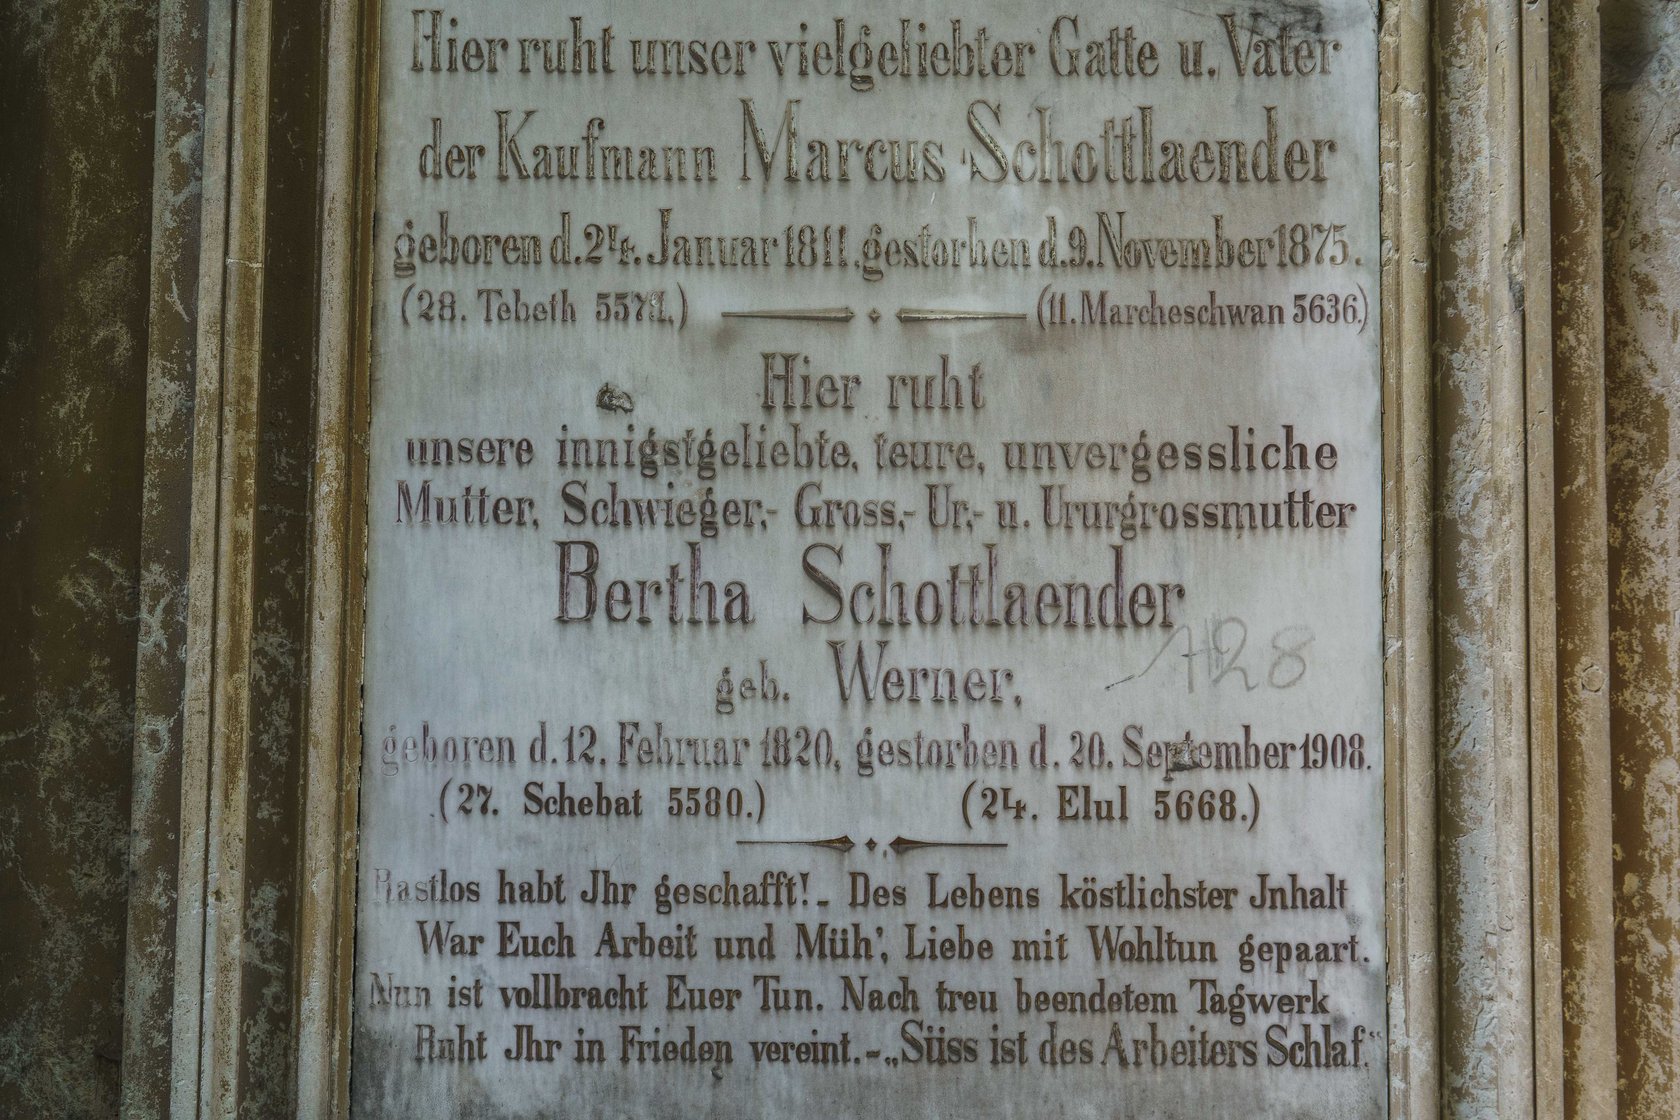 Hier ruht unser vielgeliebter Gatte u. Vater
der Kaufmann Marcus Schottlaender
geboren d. 24. Januar 1811. gestorben d. 9. November 1875.
(28. Tebeth 5571.) (11. Marcheschwan 5636.)
Hier ruht
unsere innigstgeliebte, teure, unvergessliche
Mutter, Schwieger,- Gross,- Ur,- u. Ururgrossmutter
Bertha Schottlaender
geb. Werner,
128
geboren d. 12. Februar 1820, gestorben d. 20. September 1908.
(27. Schebat 5580.) (24. Elul 5668.)
Rastlos habt Jhr geschafft!- Des Lebens köstlichster Jnhalt
War Euch Arbeit und Müh', Liebe mit Wohltun gepaart.
Nun ist vollbracht Euer Tun. Nach treu beendetem Tagwerk
Ruht Jhr in Frieden vereint.-„Süss ist des Arbeiters Schlaf.“